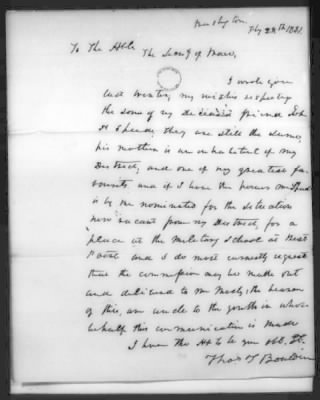 Washington
Feby 28th 1831.
To The Hble
The Secry of War,
I wrote you
last winter, my wishes respecting
the son of my deceased friend John
H Speed; they are still the same,
his mother is an inhabitant of my
District, and one of my greatest fa-
vourites, and if I have the power Mr Speed
is by me nominated for the situation
now vacant from my District, for a
place at the Military School at West
Point and I do most earnestly request
that the commission may be made out
and delivered to Mr the bearer
of this, an uncle to the youth in whose
behalf this communication is made
I have the H to be your obt. St.
Thos T Bouldin